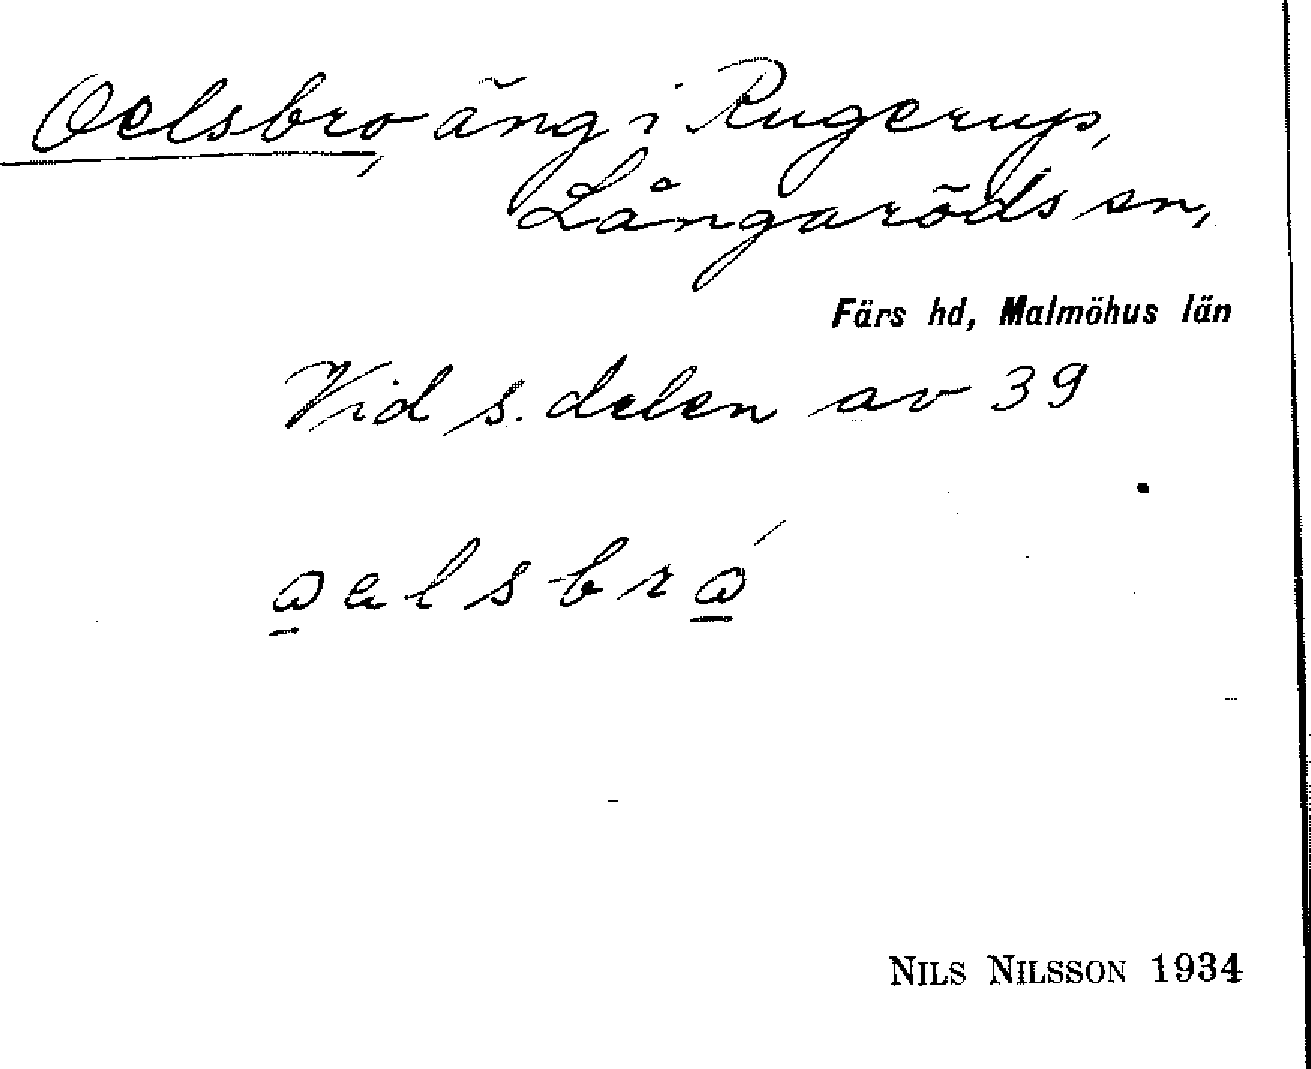 Oelsbro, äng i Rugerup,
Långaröds sn,
Färs hd, Malmöhus län
Vid s. delen av 39
NILS NILSSON 1934